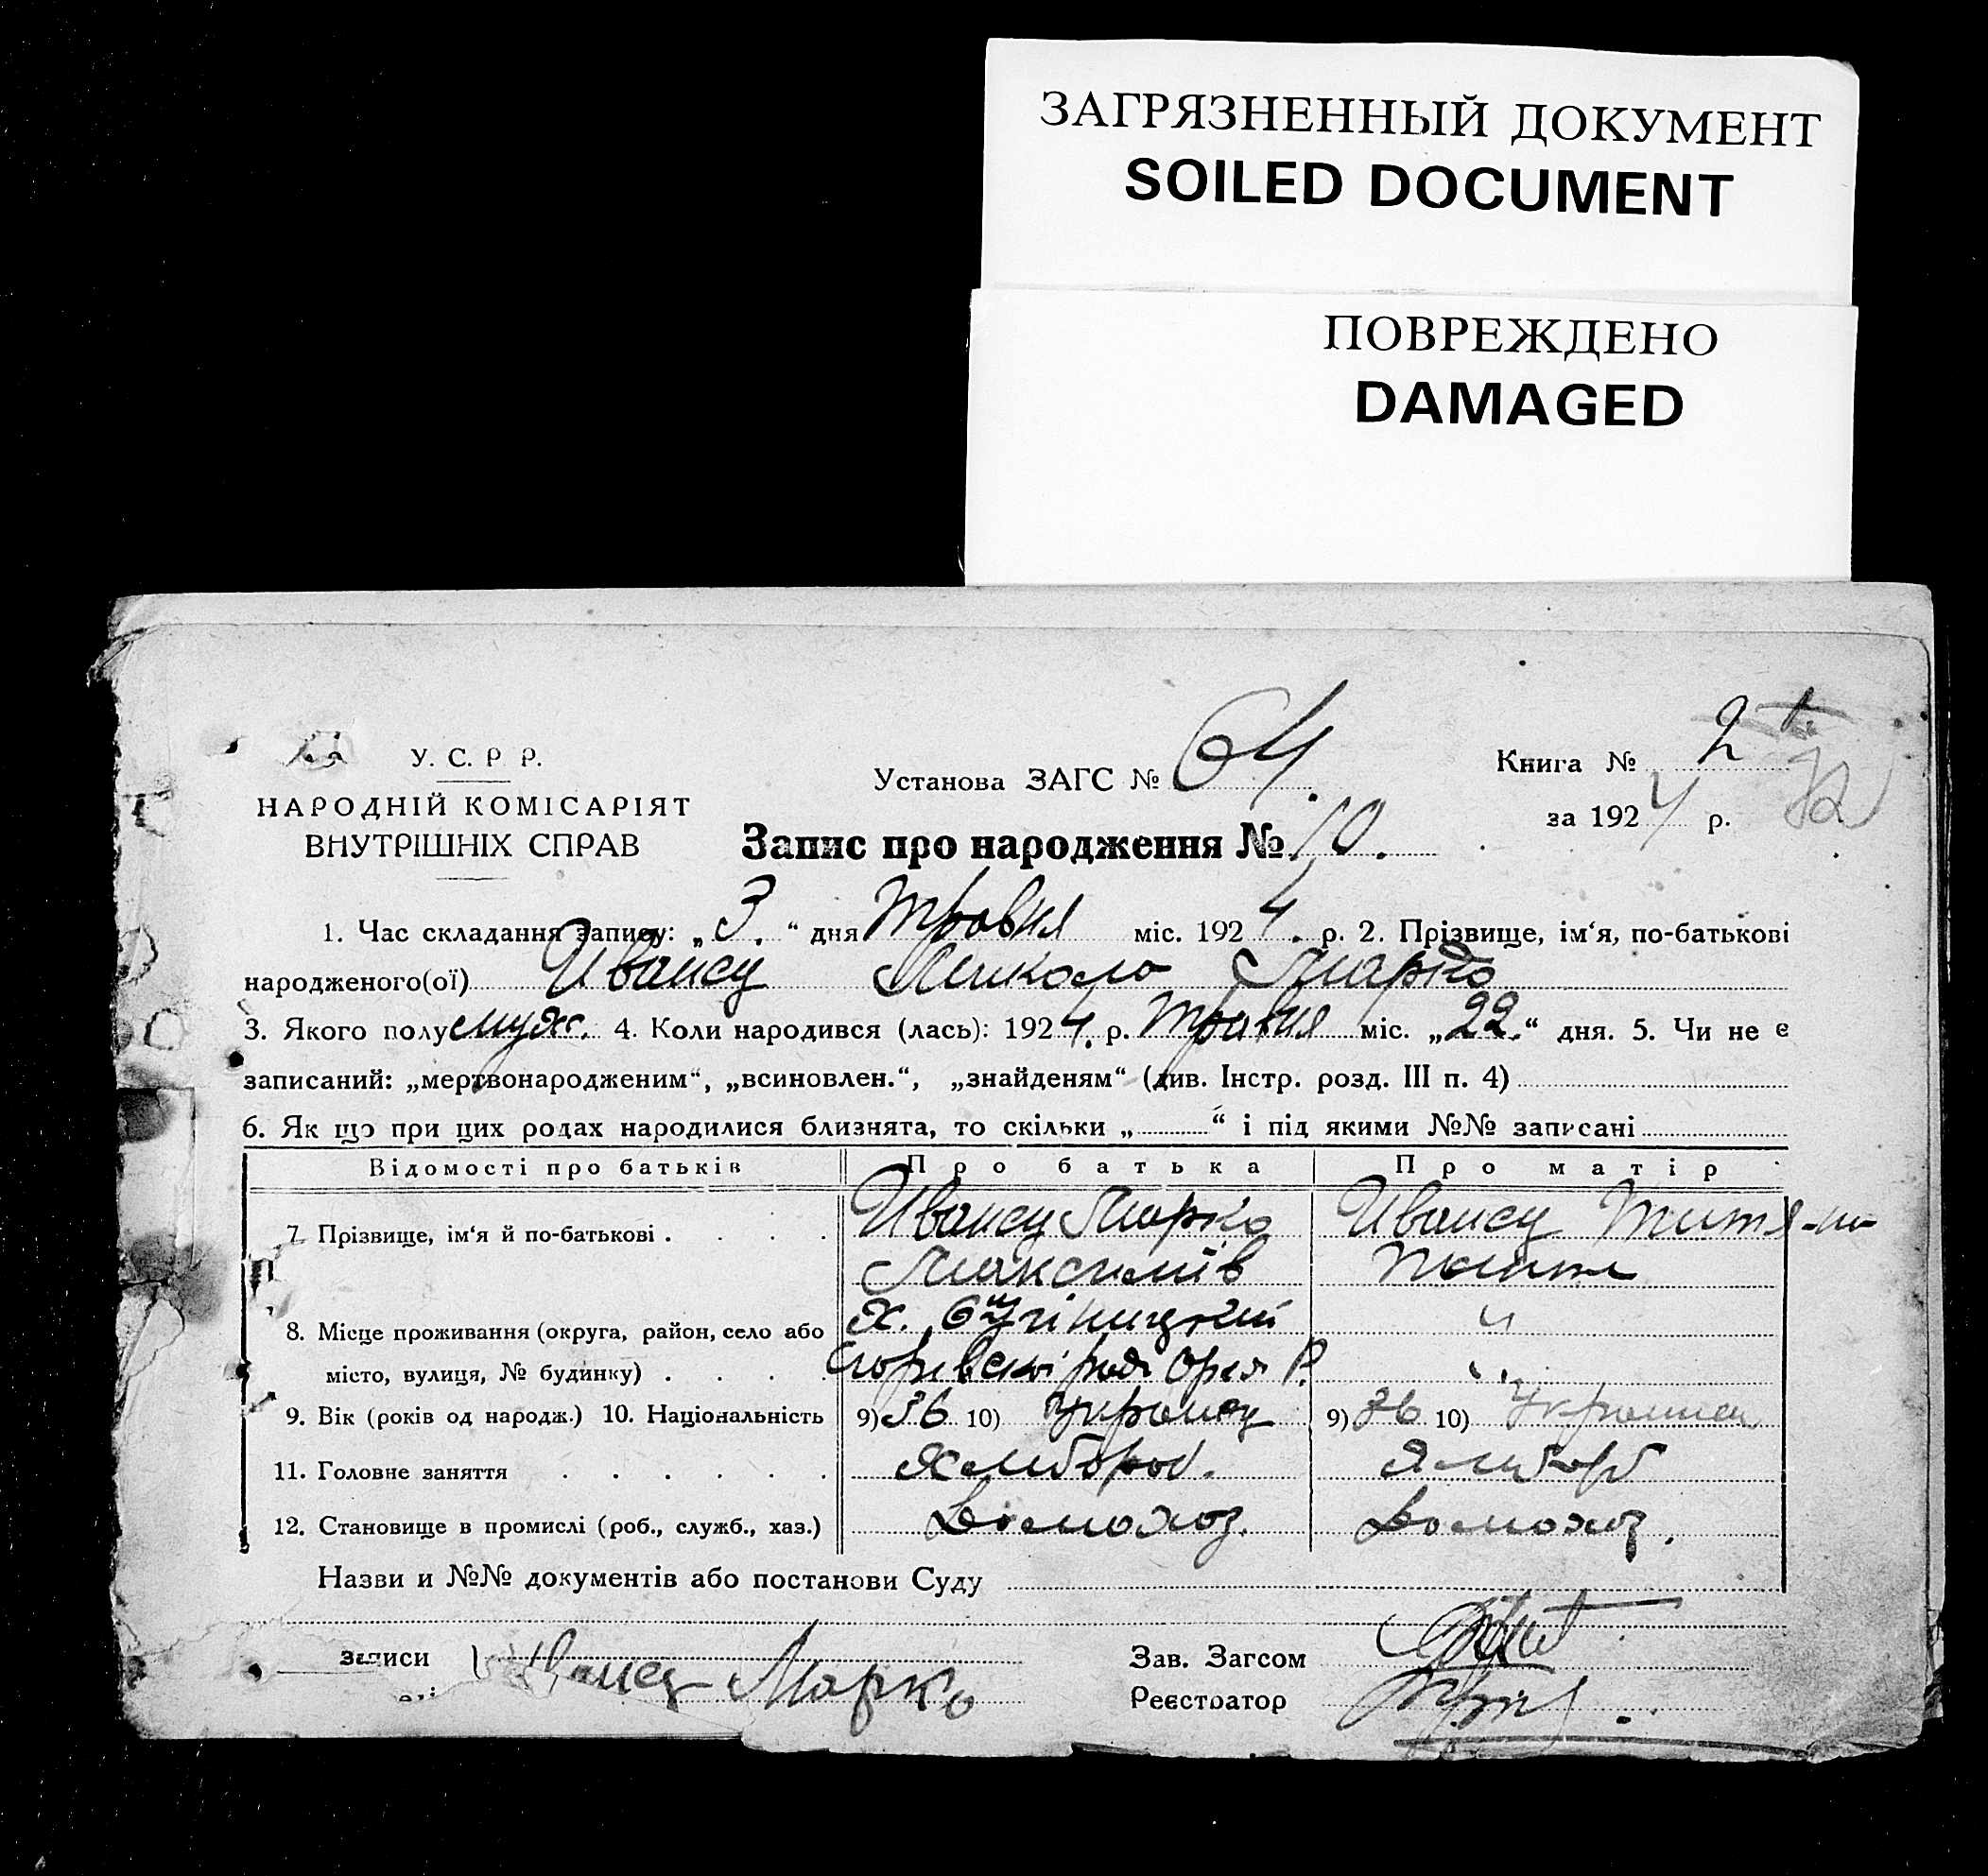 ЗАГРЯЗНЕННЫЙ ДОКУМЕНТ
SOILED DOCUMENT
ПОВРЕЖДЕНО
DAMAGED
У. С. Р Р.
НАРОДНІЙ КОМІСАРІЯТ
ВНУТРІШНІХ СПРАВ
Установа ЗАГС № 64.
Книга № 2
за 1924 р.
Запис про народження № 10.
1. Час складання запису: „3.“ дня Травня міс. 1924. р. 2. Прізвище, ім‘я, по-батькові
народженого(ої) Иванец Микола Марко
3. Якого полу муж. 4. Коли народився (лась): 1924. р. Травня міс. „22.“ дня. 5. Чи не є
записаний: „мертвонародженим“, „всиновлен.“, „знайденям“ (див. Інстр. розд. III п. 4)
6. Як що при цих родах народилися близнята, то скільки „ “ і під якими №№ записані
Відомості про батьків Про батька Про матір
7. Прізвище, ім‘я й по-батькові Иванец Марко Иванец
Максимів
8. Місце проживання (округа, район, село або х.
місто, вулиця, № будинку)
9. Вік (років од народж.) 10. Національність 9) 36 10) Украиец 9) 36 10)
11. Головне заняття Хлибороб.
12. Становище в промислі (роб., служб., хаз.) Домохоз. Домохоз.
Назви и №№ документів або постанови Суду
записи Иванец Марко
Зав. Загсом
Реєстратор